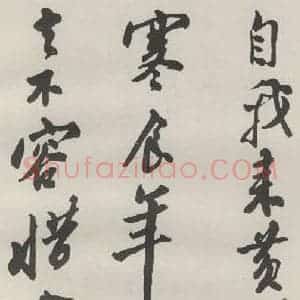 自我来黄
寒食年
去不容惜
Shufaziliao.com